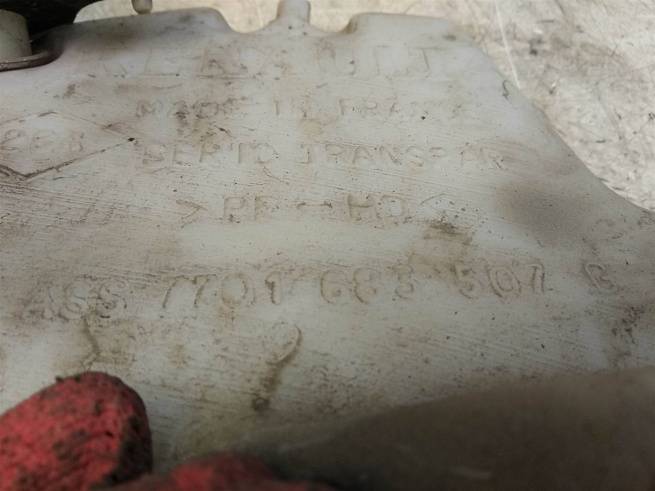 RENAULT
MADE IN FRANCE
SERTO TRANSPAR
>PE-HD<
ASS 7701 683 507 B